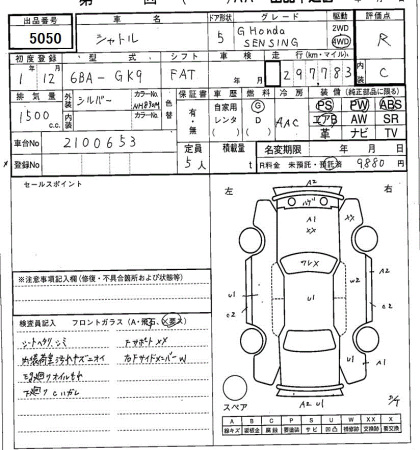 出品番号 車名 ドア形状 グレード 駆動 評価点
5050 シャトル 5 G Honda SENSING 2WD 4WD R
初度登録 型式 シフト 車検 走行(km・マイル) 内装
1年 12月 6BA-GK9 FAT 年 月 297,783 C
排気量 外装 シルバー カラーNo. NH830M 色替 保証書 車歴 燃料 冷房 装備 (純正部品に限る)
1500 c.c. 内装 カラーNo. 有・無 自家用 レンタ ( ) G D ( ) AAC PS PW ABS
エアB AW SR
革 ナビ TV
車台No 2100653 定員 積載量 名変期限 年 月 日
登録No 5人 t R料金 未預託・預託済 9,880円
セールスポイント
左 右
A2
ハゲ
A1
XX
XX
フレX
A2
U1 U1 U2
C2 C2
U1 A1
A2 U1
スペア
※注意事項記入欄(修復・不具合箇所および状態等)
検査員記入 フロントガラス(A・飛石、X要X)
シートヘタリ、シミ FサポートXX
内装荷室汚れキズニオイ 右FサイドメンバーW
下廻りサビ
A B C P S U W XX X
線キズ 要板金 腐蝕 要塗装 サビ 凹凸 補修跡 交換跡 要交換